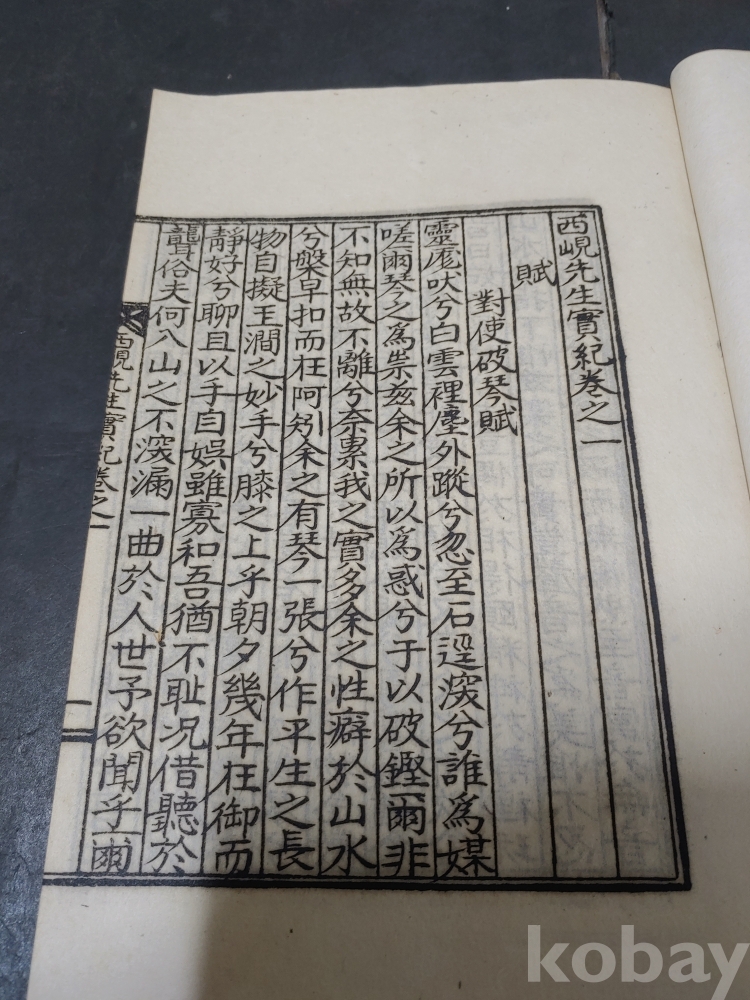 西峴先生實紀卷之一
賦
對使破琴賦
靈厖吠兮白雲裡塵外蹤兮忽至石逕深兮誰爲媒
嗟爾琴之爲祟玆余之所以爲惑兮于以破鏗爾非
不知無故不離兮奈累我之實多余之性癖於山水
兮槃早扣而在阿矧余之有琴一張兮作平生之長
物自擬王澗之妙手兮膝之上乎朝夕幾年在御而
靜好兮聊且以手自娛雖寡和吾猶不耻况借聽於
聾俗夫何八山之不深漏一曲於人世予欲聞乎爾
西峴先生實紀卷之一
kobay